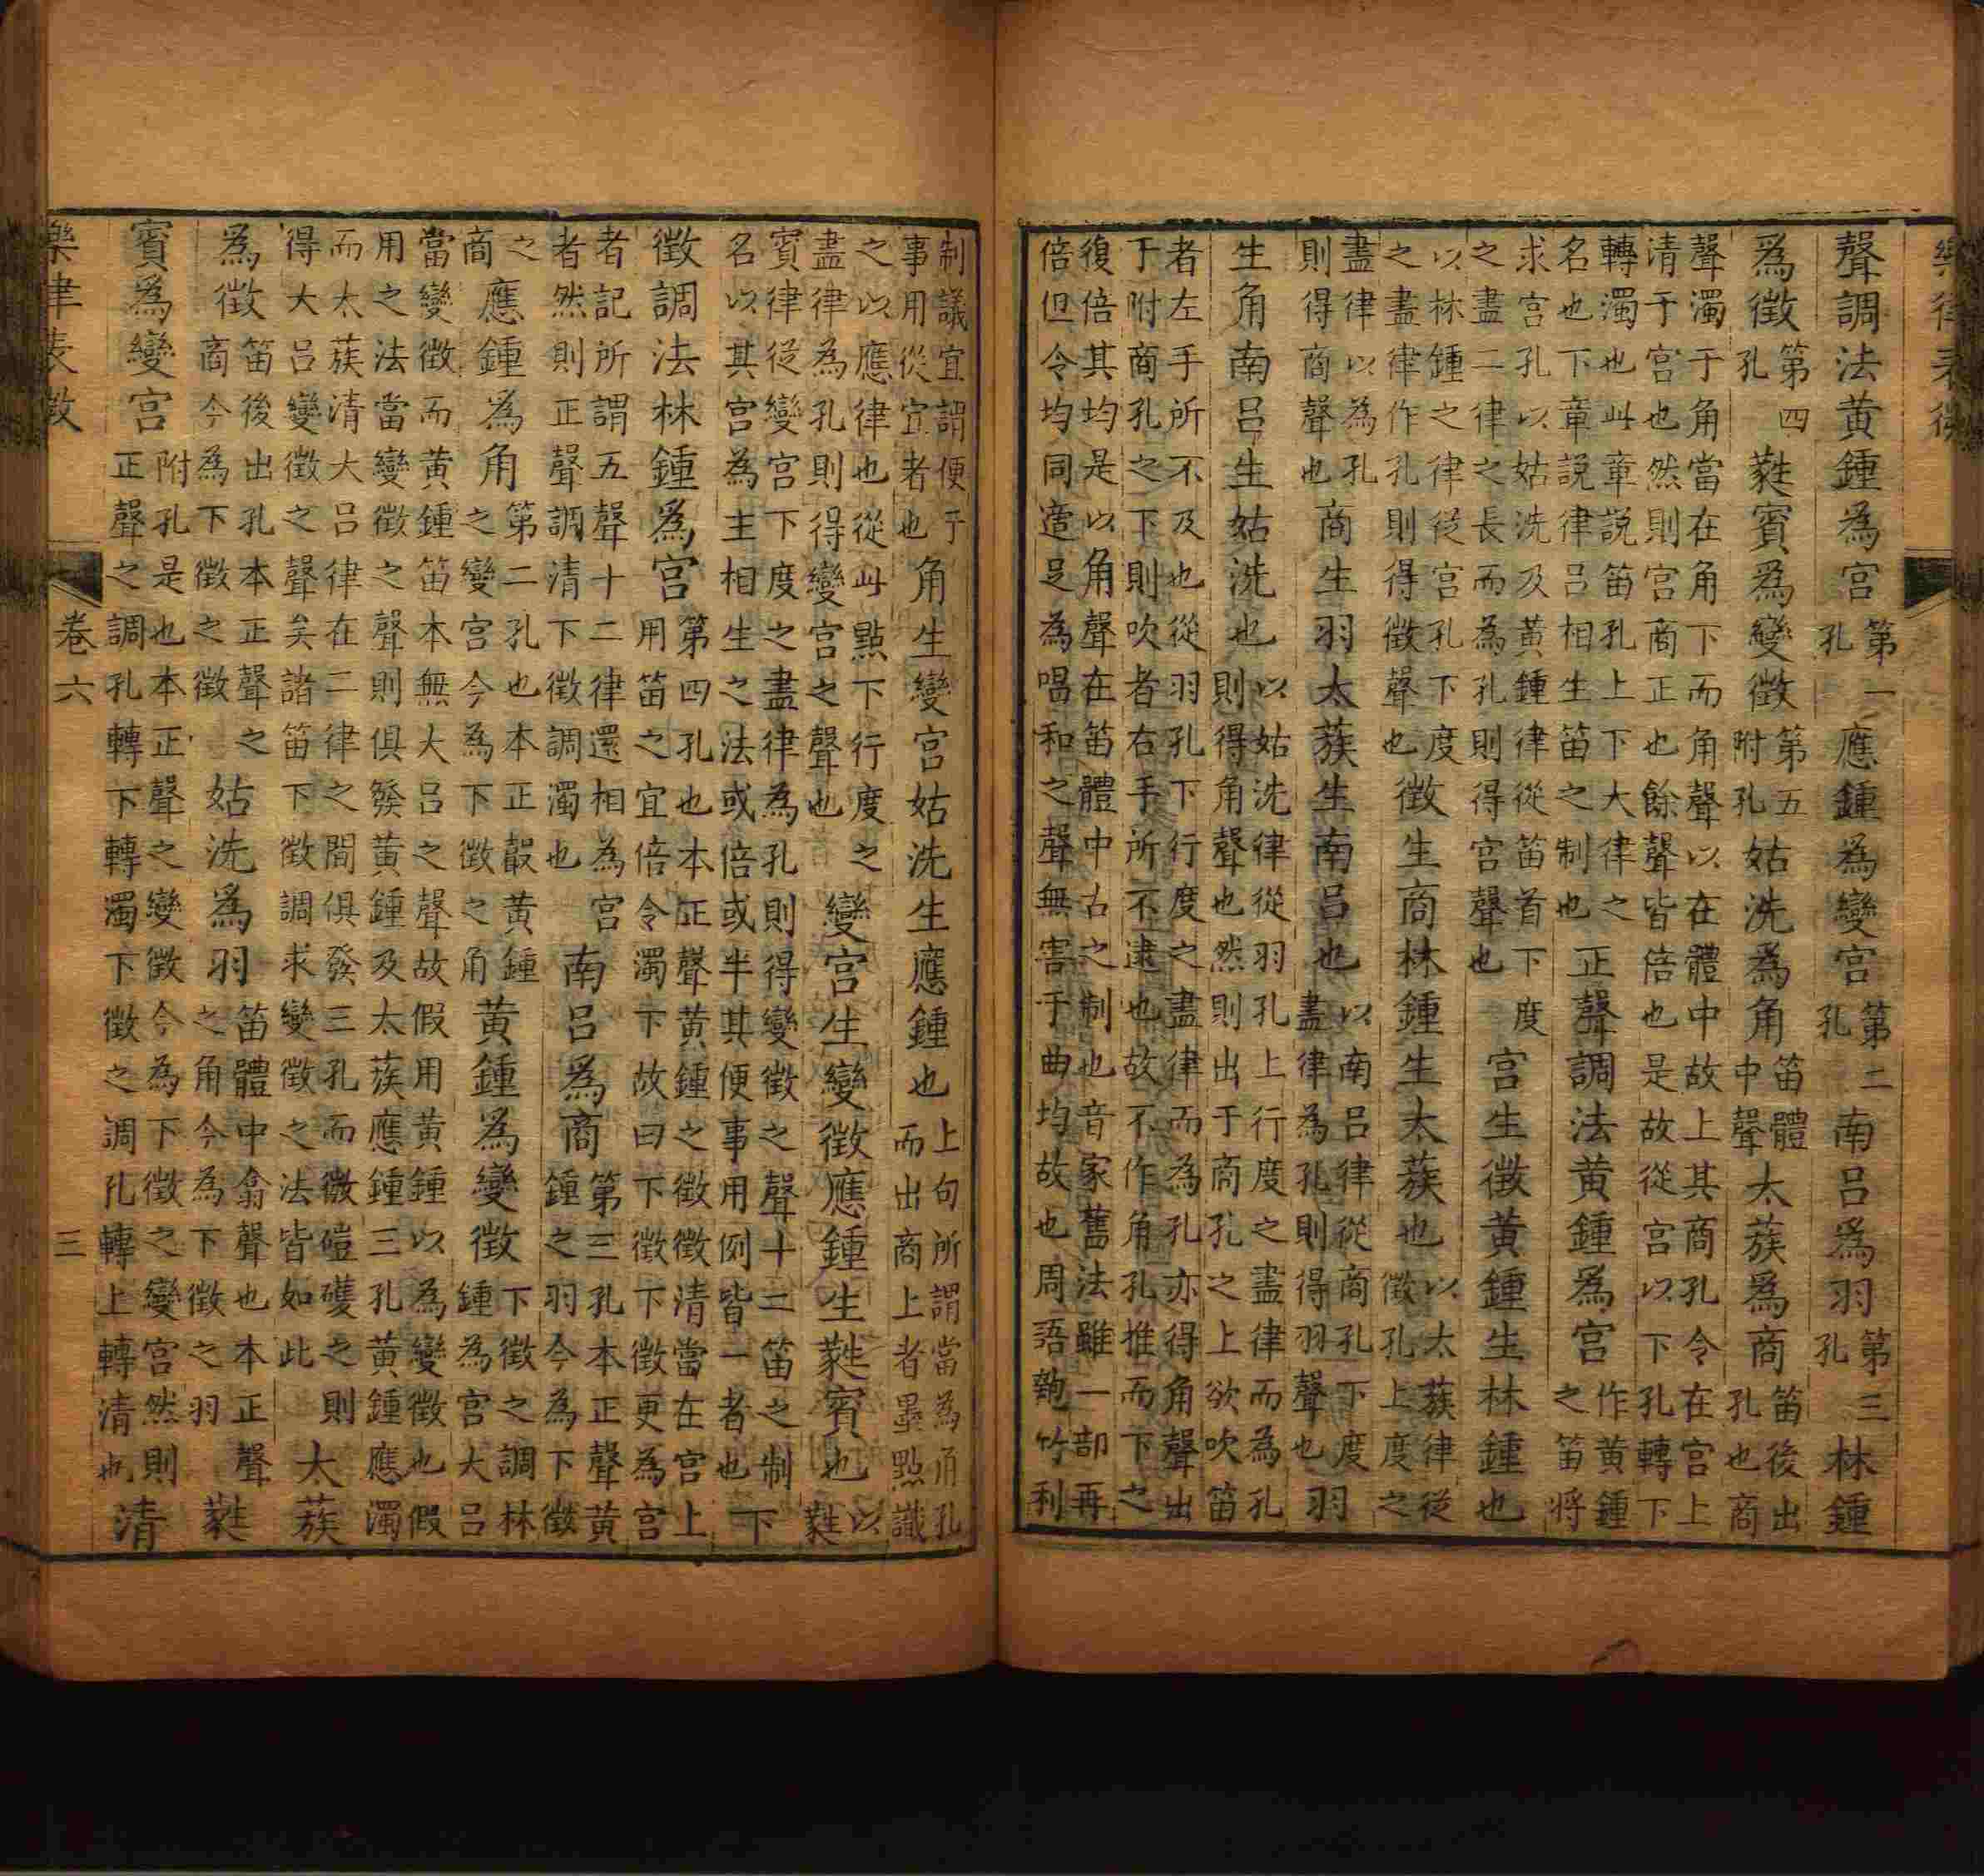 樂律表微
聲調法黃鍾為宮第一孔應鍾為變宮第二孔南呂為羽第三孔林鍾
為徵第四孔蕤賓為變徵第五附孔姑洗為角笛體中聲太蔟為商笛後出孔也商
聲濁于角當在角下而角聲以在體中故上其商孔令在宮上
清于宮也然則宮商正也餘聲皆倍也是故從宮以下孔轉下
轉濁也此章說笛孔上下大律之名也下章說律呂相生笛之制也正聲調法黃鍾為宮作黃鍾之笛將
求宮孔以姑洗及黃鍾律從笛首下度之盡二律之長而為孔則得宮聲也宮生徵黃鍾生林鍾也
以林鍾之律從宮孔下度之盡律作孔則得徵聲也徵生商林鍾生太蔟也以太蔟律從徵孔上度之
盡律以為孔則得商聲也商生羽太蔟生南呂也以南呂律從商孔下度盡律為孔則得羽聲也羽
生角南呂生姑洗也以姑洗律從羽孔上行度之盡律而為孔則得角聲也然則出于商孔之上欲吹笛
者左手所不及也從羽孔下行度之盡律而為孔亦得角聲出
于附商孔之下則吹者右手所不逮也故不作角孔推而下之
復倍其均是以角聲在笛體中古之制也音家舊法雖一部再
倍但令均同適足為唱和之聲無害于曲均故也周語匏竹利
制議宜謂便于事用從宜者也角生變宮姑洗生應鍾也上句所謂當為角孔而出商上者墨點識
之以應律也從此點下行度之盡律為孔則得變宮之聲也變宮生變徵應鍾生蕤賓也以蕤
賓律從變宮下度之盡律為孔則得變徵之聲十二笛之制名以其宮為主相生之法或倍或半其便事用例皆一者也下
徵調法林鍾為宮第四孔也本正聲黃鍾之徵徵清當在宮上用笛之宜倍令濁下故曰下徵下徵更為宮
者記所謂五聲十二律還相為宮者然則正聲調清下徵調濁也南呂為商第三孔本正聲黃鍾之羽今為下徵
之商應鍾為角第二孔也本正聲黃鍾之變宮今為下徵之角黃鍾為變徵下徵之調林鍾為宮大呂
當變徵而黃鍾笛本無大呂之聲故假用黃鍾以為變徵也假
用之法當變徵之聲則俱發黃鍾及太蔟應鍾三孔黃鍾應濁
而太蔟清大呂律在二律之間俱發三孔而微磑礭之則得大呂變徵之聲矣諸笛下徵調求變徵之法皆如此太蔟
為徵笛後出孔本正聲之商今為下徵之徵姑洗為羽笛體中翕聲也本正聲之角今為下徵之羽蕤
賓為變宮附孔是也本正聲之變徵今為下徵之變宮然則正聲之調孔轉下轉濁下徵之調孔轉上轉清也清
樂律表微 卷六 三